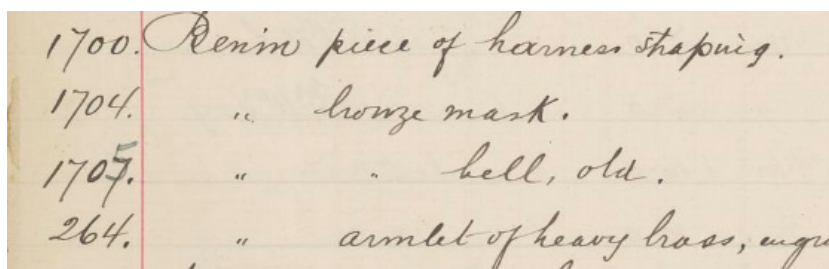 1700. Benin piece of harness shaping.
1704. " bronze mask.
1705. " " bell, old.
264. " armlet of heavy brass, engra